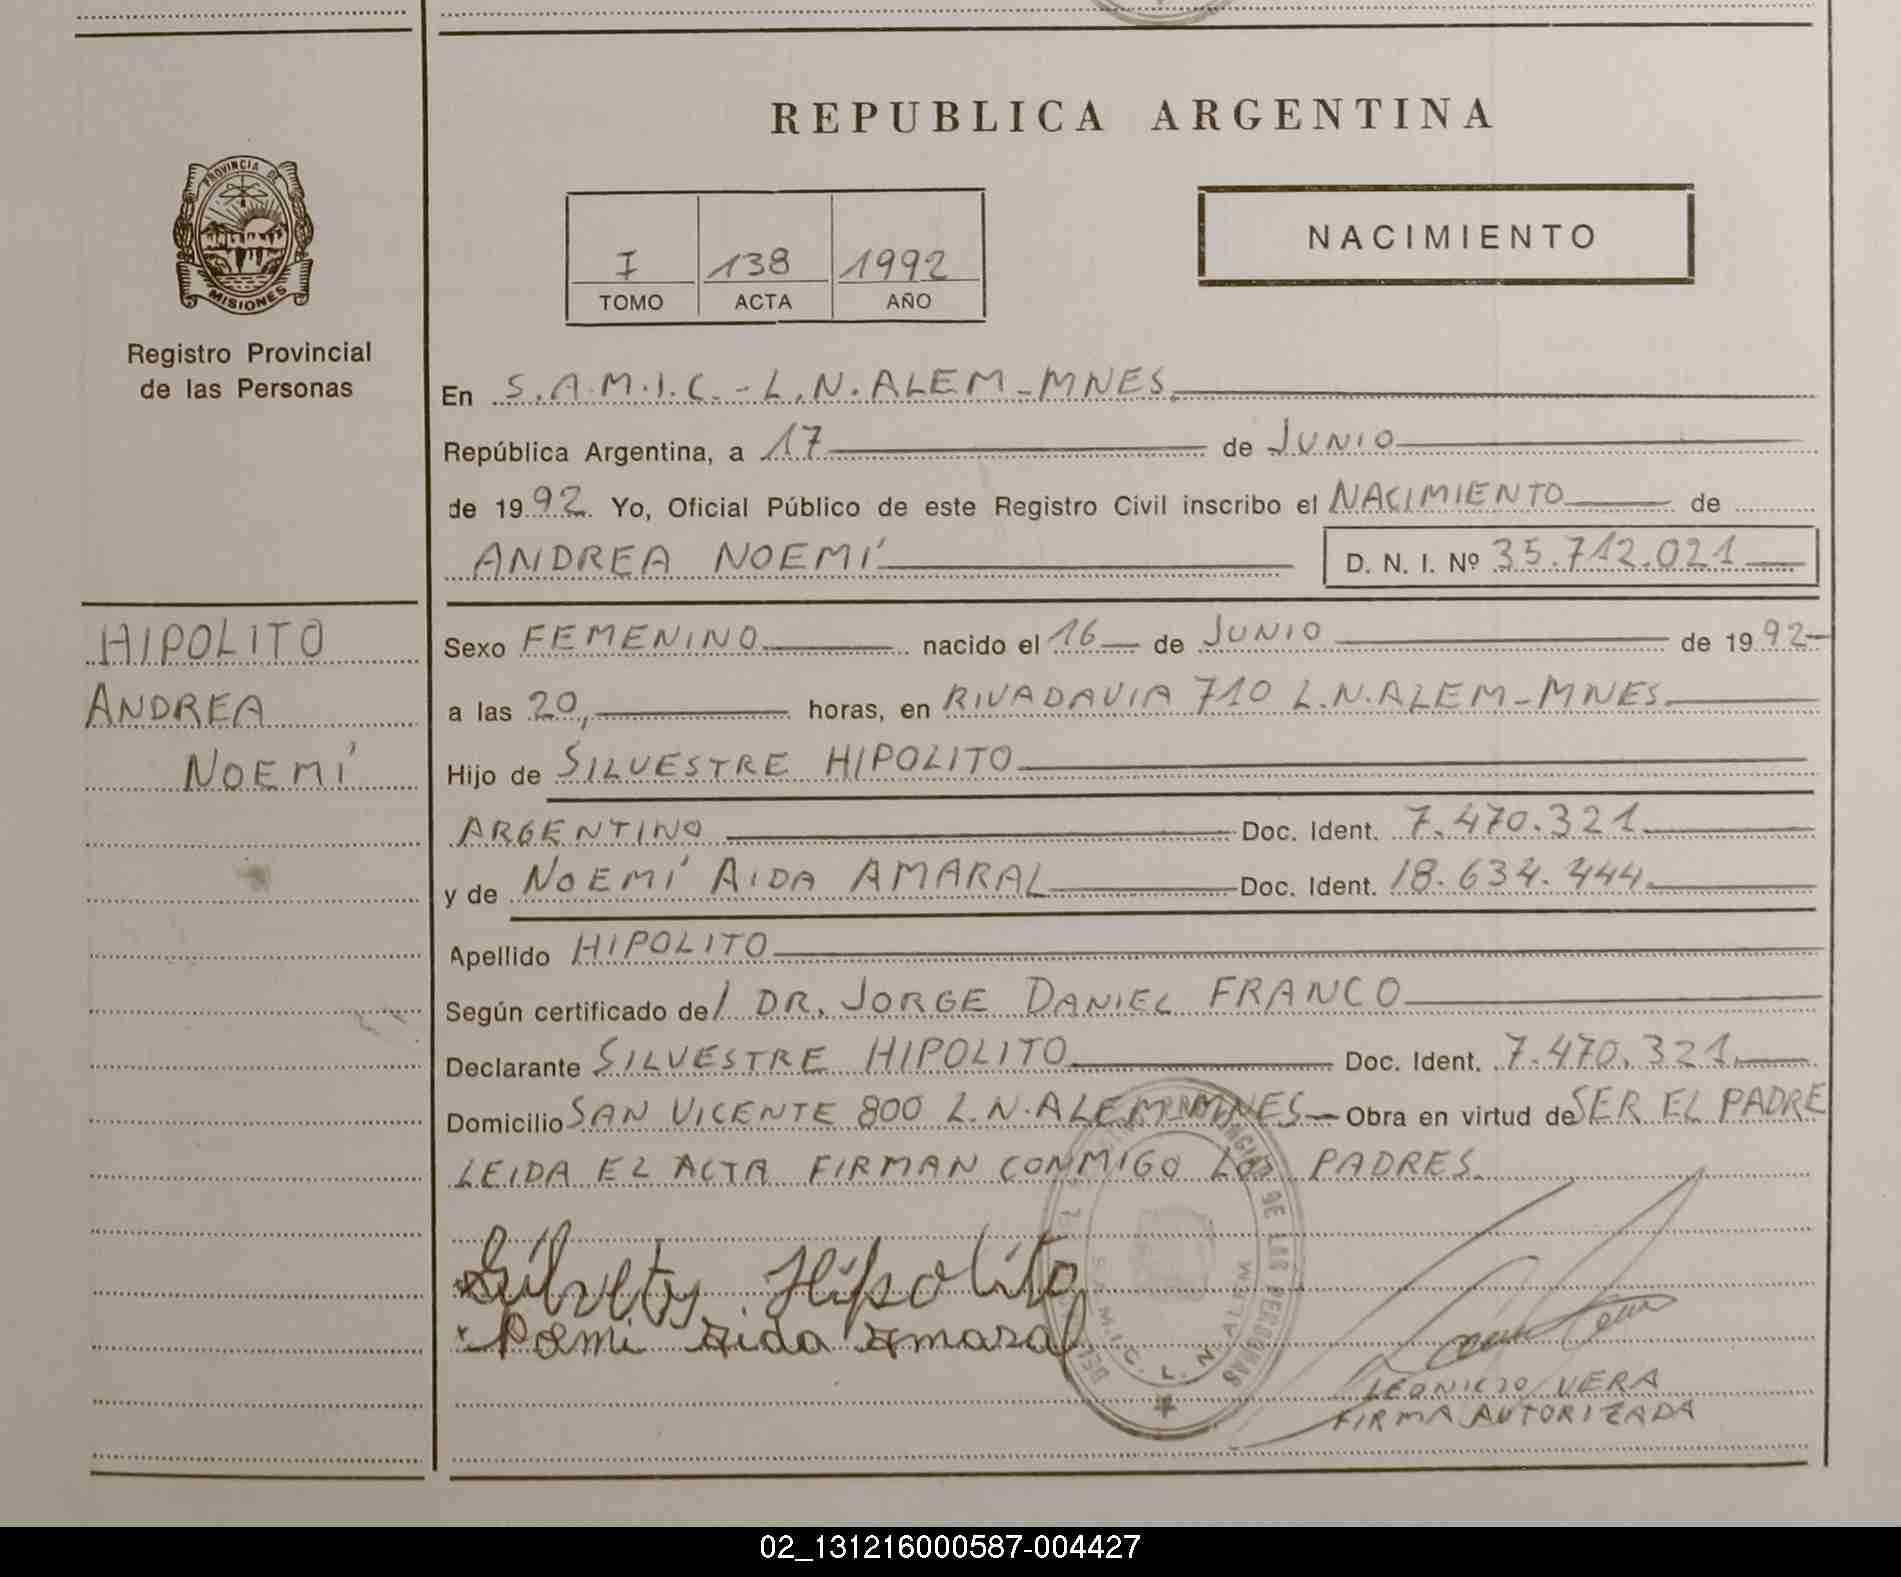 REPUBLICA ARGENTINA
PROVINCIA DE
MISIONES
Registro Provincial
de las Personas
I 138 1992
TOMO ACTA AÑO
NACIMIENTO
En S.A.M.I.C.-L.N.ALEM-MNES.
República Argentina, a 17 de JUNIO
de 1992. Yo, Oficial Público de este Registro Civil inscribo el NACIMIENTO de
ANDREA NOEMÍ D. N. I. Nº 35.712.021
HIPOLITO
ANDREA
NOEMÍ
Sexo FEMENINO nacido el 16 de JUNIO de 1992
a las 20, horas, en RIVADAVIA 710 L.N.ALEM-MNES.
Hijo de SILVESTRE HIPOLITO
ARGENTINO Doc. Ident. 7.470.321
y de NOEMÍ AIDA AMARAL Doc. Ident. 18.634.444
Apellido HIPOLITO
Según certificado de/ DR. JORGE DANIEL FRANCO
Declarante SILVESTRE HIPOLITO Doc. Ident. 7.470.321
Domicilio SAN VICENTE 800 L.N.ALEM-MNES- Obra en virtud de SER EL PADRE
LEIDA EL ACTA FIRMAN CONMIGO LOS PADRES.
Hipolito
Noemi Aida Amaral
DE LAS PERSONAS
S.A.M.I.C. L. N. ALEM
LEONICIO VERA
FIRMA AUTORIZADA
02_131216000587-004427